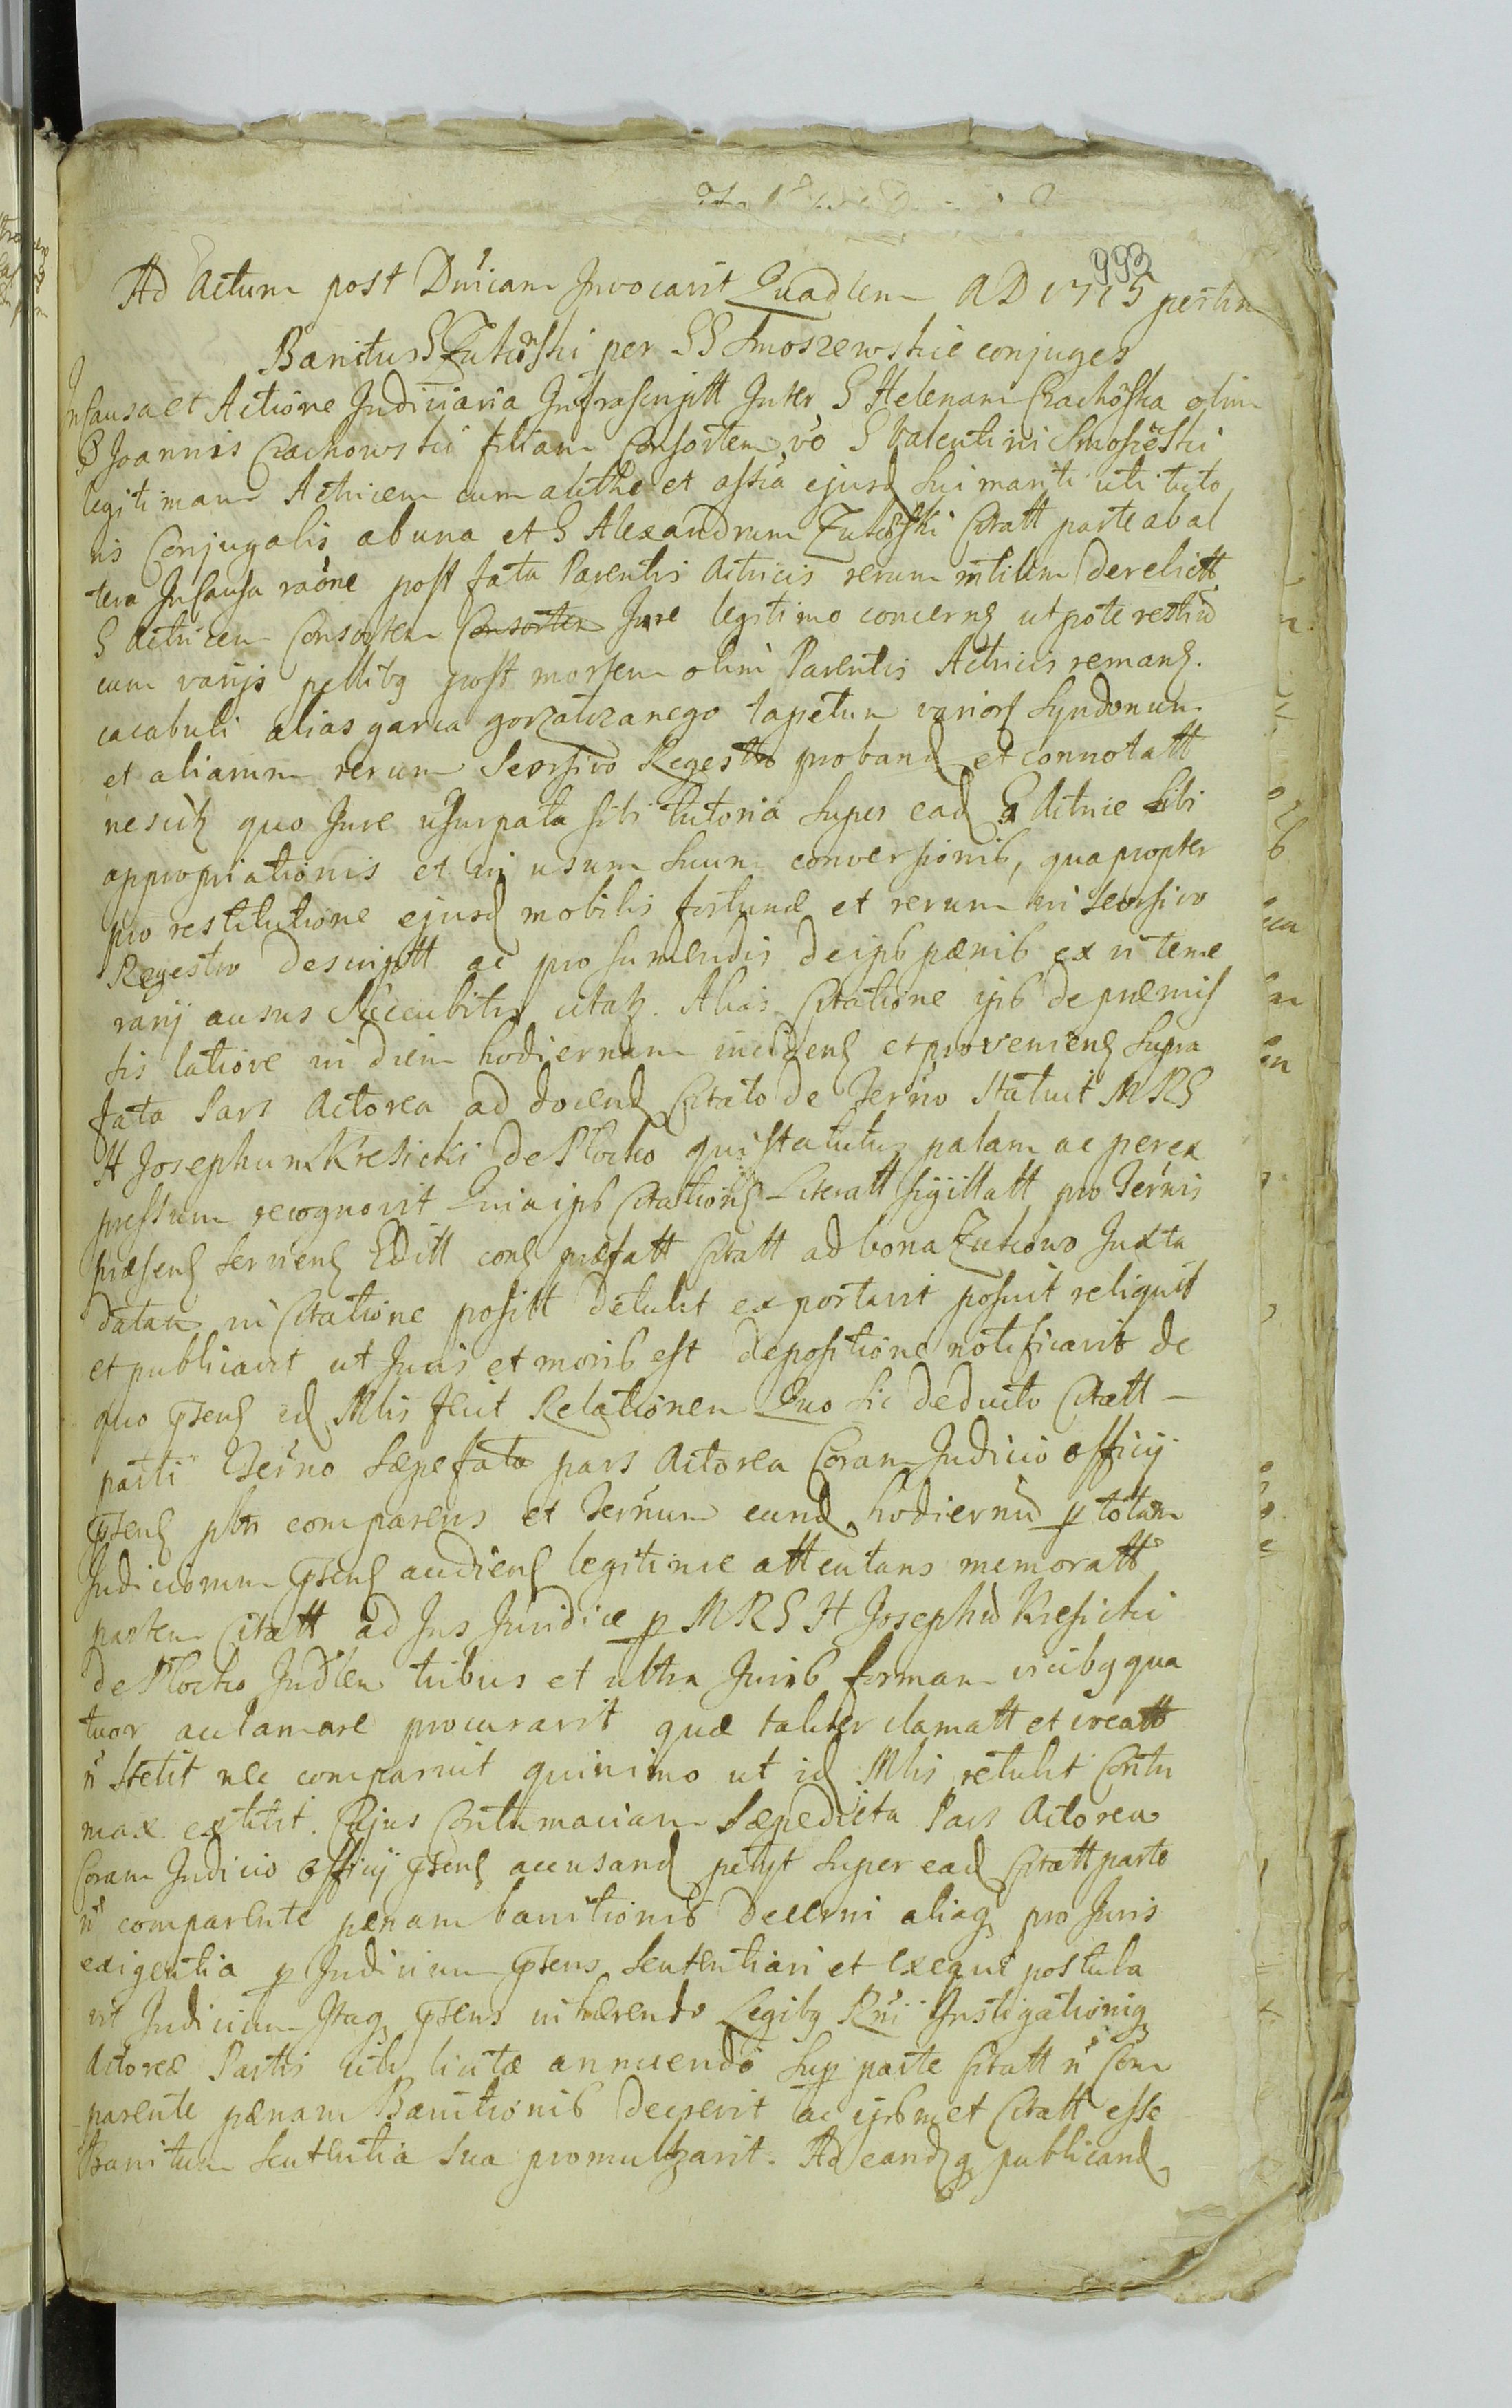 993
Ad Actum post Dnicam Invocavit Quadlem AD 1715 pertin
Banitus G Zukowski per GG Smoszewskie conjuges
In Causa et Actione Judiciaria Infrascriptt Inter G Helenam Crachoska olim
G Joannis Crachowski filiam Consortem vo G Valentini Smoszeski
legitimam Actricem cum authe et asstia ejusd sui mariti uti tuto
ris Conjugalis ab una et G Alexandrum Zukoski Citatt parte ab al
tera In Causa raone post fata Parentis Actricis rerum mlilum derelictt
G Actricem Consortem Consortem Jure legitimo concerns utpote restiu
cum varijs pellibq post mortem olim Parentis Actricis remans.
cacabuli alias garca gorzalczanego tapetum varior Syndonum
et aliarum rerum Seorsivo Regestro proband et connotatt
nescitz quo Jure usurpata sibi tutoria super ead G Actrice sibi
appropriationis et in usum suum conversionis, quapropter
pro restitutione ejusd mobilis fortunae et rerum in seorsivo
Regestro descriptt ac pro sumendis de ipso paenis ex vi teme
rarij ausus Succubitis citatz. Alias Citatione ipso de praemis
sis latiore in diem hodiernam incidens et proveniens supra
fata Pars Actorea ad docend Citato de Termo Statuit MRG
H Josephum Kresicki de Plocko qui statutus palam ac per ex
pressum recognovit Quia ipse Citations Literatt sigillatt pro Termis
praesens serviens Editt cons praefatt Citatt ad bona Zukowo Juxta
datam in Citatione positt detulit exportavit posuit reliquit
et publicavit ut Juris et moris est depositione notificavit de
quo psens id Mlis fecit Relationem Quo sic deducto Citatt
parti Termo saepefata pars Actorea Coram Judicio officij
psens pltr comparens et Termum eund hodiernu p totam
Judiciorum psens audiens legitime attentans memoratt
partem Citatt ad Jus Juridice p MRG H Josephu Kresicki
de Plocko Judlem tribus et ultra Juris formam vicibq qua
tuor acclamare procuravit quae taliter clamatt et vocatt
n stetit nec comparuit quinimo ut id Mlis retulit Contu
max extitit. Cujus Contumaciam Saepedicta Pars Actorea
Coram Judicio officij psens accusand petijt super ead Citatt parte
n comparente paenam banitionis decerni aliaq pro Juris
exigentia p Judicium psens sententiari et exequi postula
vit Judicium Itaq psens inhaerendo Legibq Rni Instigationiq
Actoreae Partis uti licitae annuendo sup parte Citatt n Com
parente paenam Banitionis decrevit ac ipsumet Citatt esse
Banitum sententia sua promulgavit. Ad eandq publicand